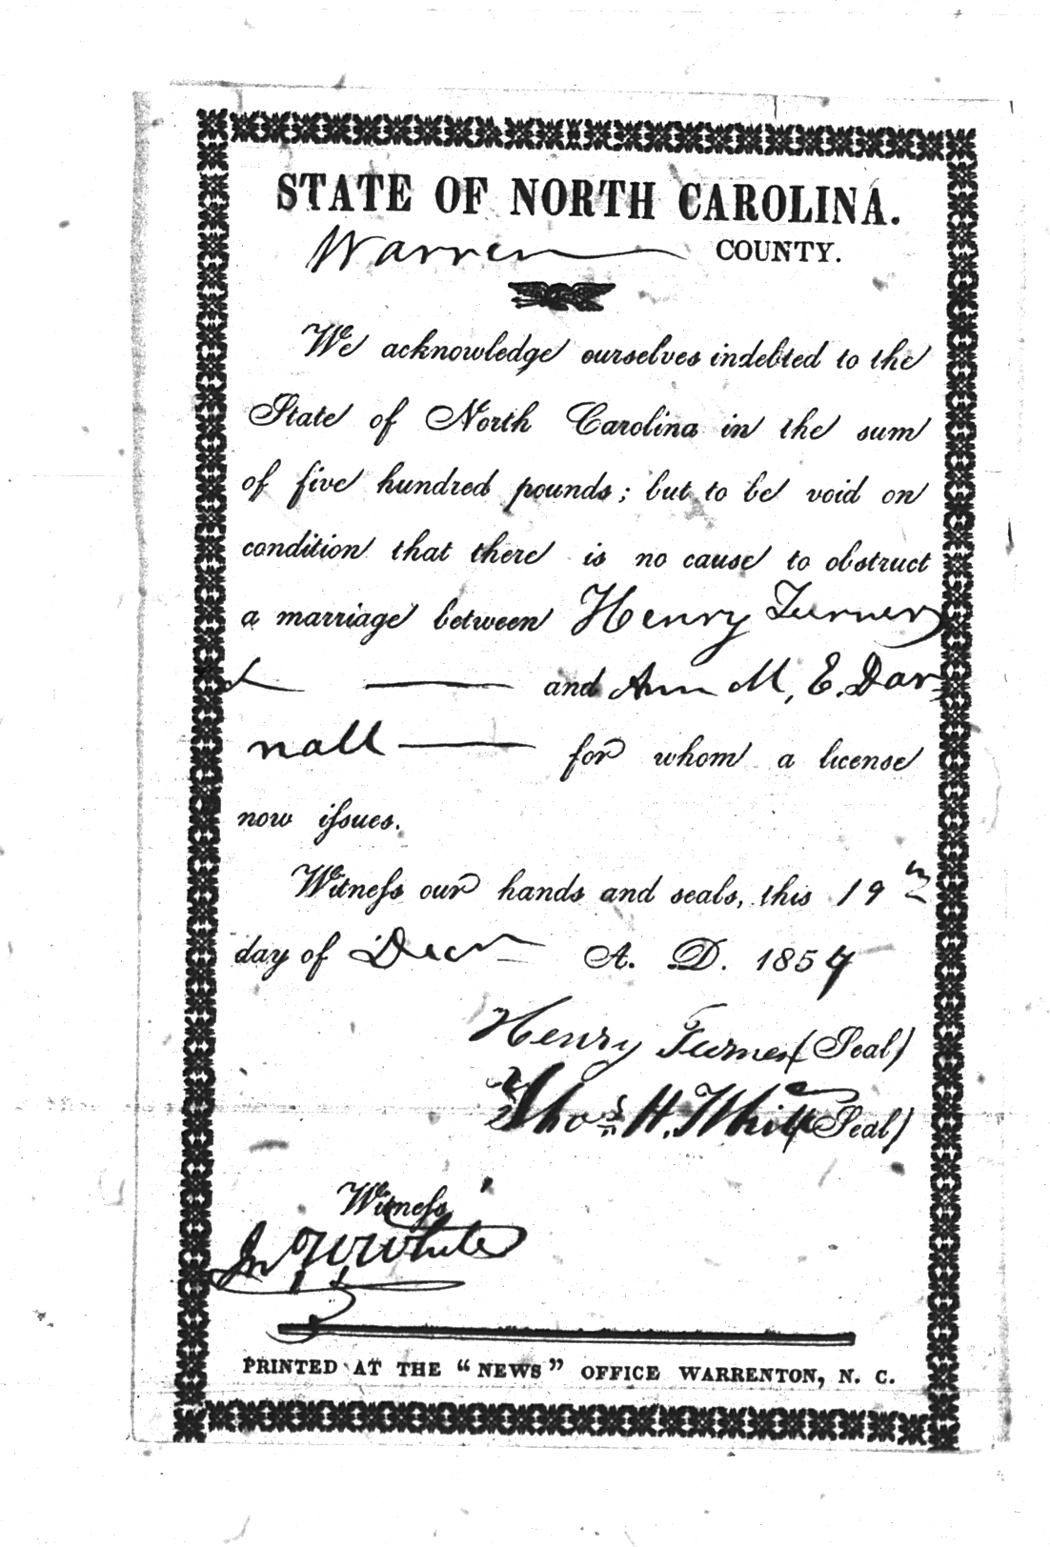 STATE OF NORTH CAROLINA.
Warren COUNTY.
We acknowledge ourselves indebted to the
State of North Carolina in the sum
of five hundred pounds; but to be void on
condition that there is no cause to obstruct
a marriage between Henry Turner
and Ann M, E. Dar
nall for whom a license
now issues.
Witness our hands and seals, this 19th
day of Decr A. D. 1857
Henry Turner (Seal)
Thos H. White (Seal)
Witness
Jno W White
PRINTED AT THE “NEWS” OFFICE WARRENTON, N. C.